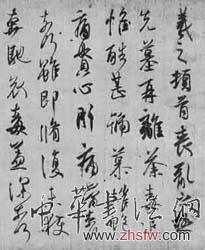 羲之頓首喪亂之極
先墓再離荼毒追
惟酷甚號慕摧絕
痛貫心肝痛當奈何
雖即脩復未獲
奔馳哀毒益深奈何
中華書法網
www.zhsfw.com